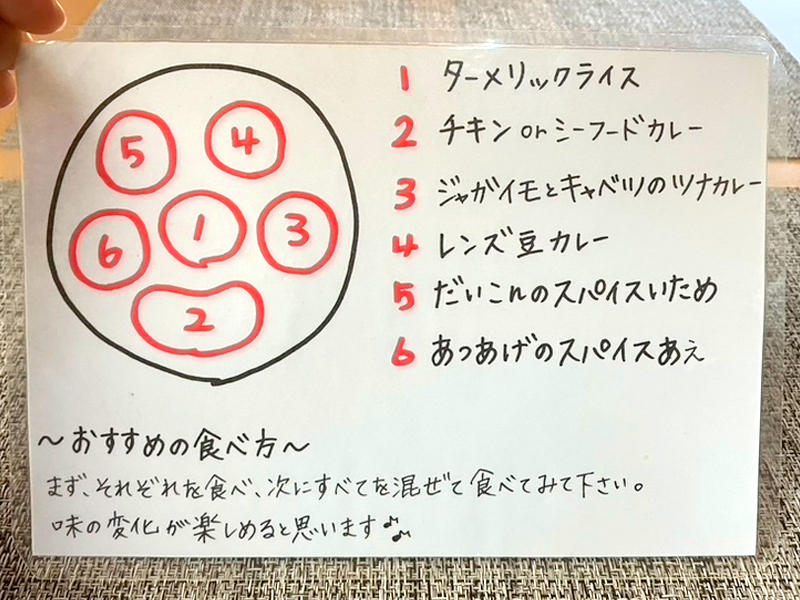 5
4
6
1
3
2
1 ターメリックライス
2 チキン or シーフードカレー
3 ジャガイモとキャベツのツナカレー
4 レンズ豆カレー
5 だいこんのスパイスいため
6 あつあげのスパイスあえ
〜おすすめの食べ方〜
まず、それぞれを食べ、次にすべてを混ぜて食べてみて下さい。
味の変化が楽しめると思います♪♪